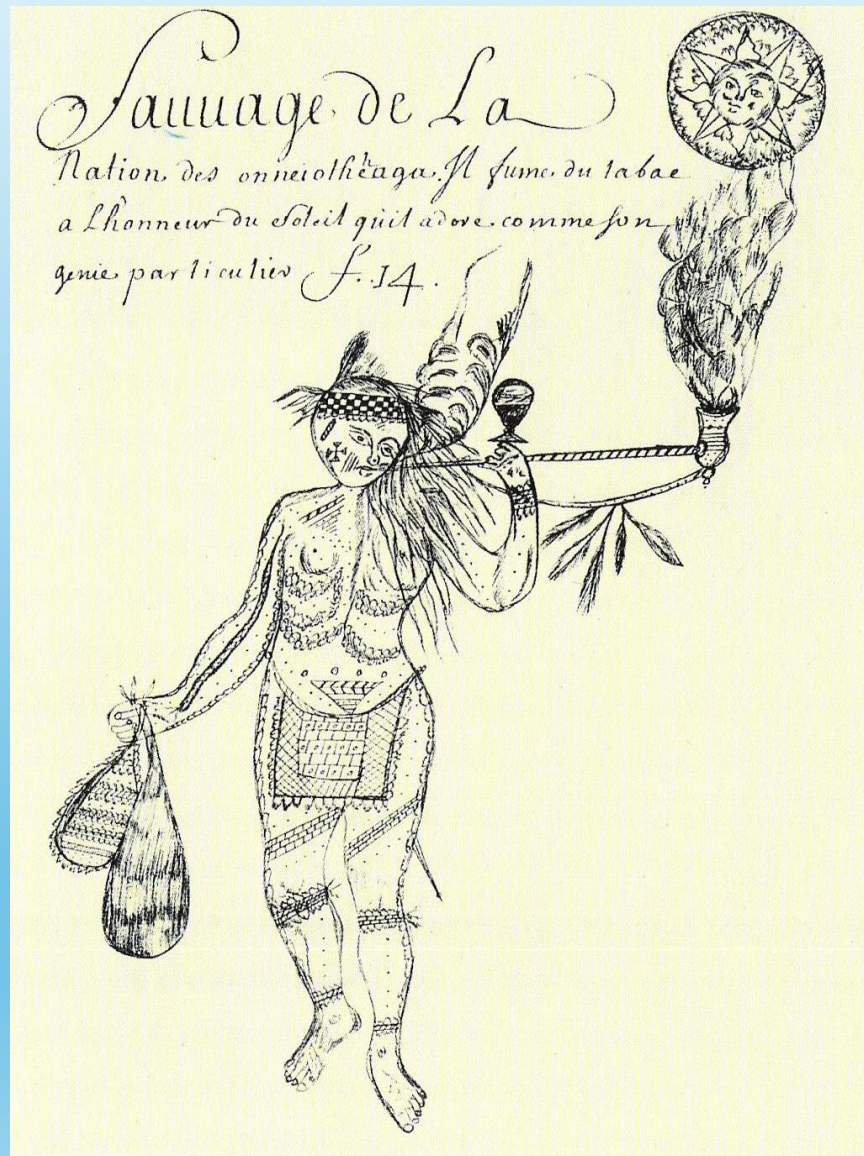 Sauuage de La
Nation des onneiothéaga. Il fume du tabac
a Lhonneur du soleil qúil adore comme son
genie particulier f. 14.